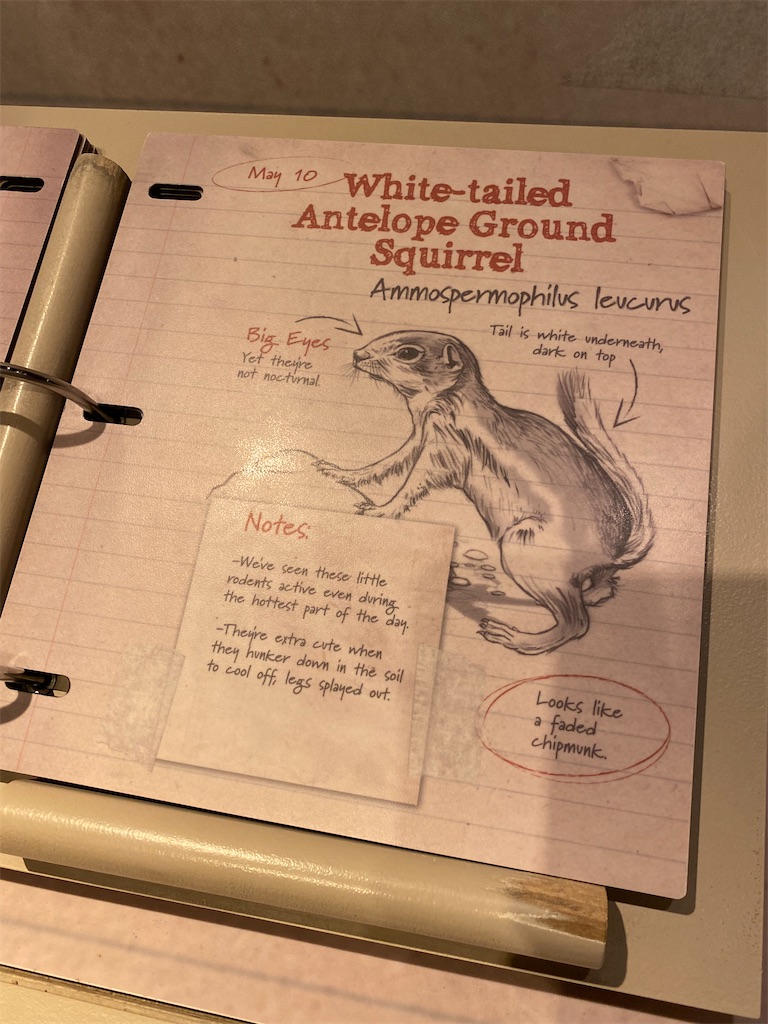 May 10
White-tailed
Antelope Ground
Squirrel
Ammospermophilus leucurus
Big Eyes
Yet they're
not nocturnal.
Tail is white underneath,
dark on top
Notes:
-We've seen these little
rodents active even during
the hottest part of the day.
-They're extra cute when
they hunker down in the soil
to cool off, legs splayed out.
Looks like
a faded
chipmunk.